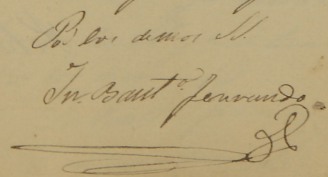 Por los demas S.
Jn. Bautᵒ Ferrando